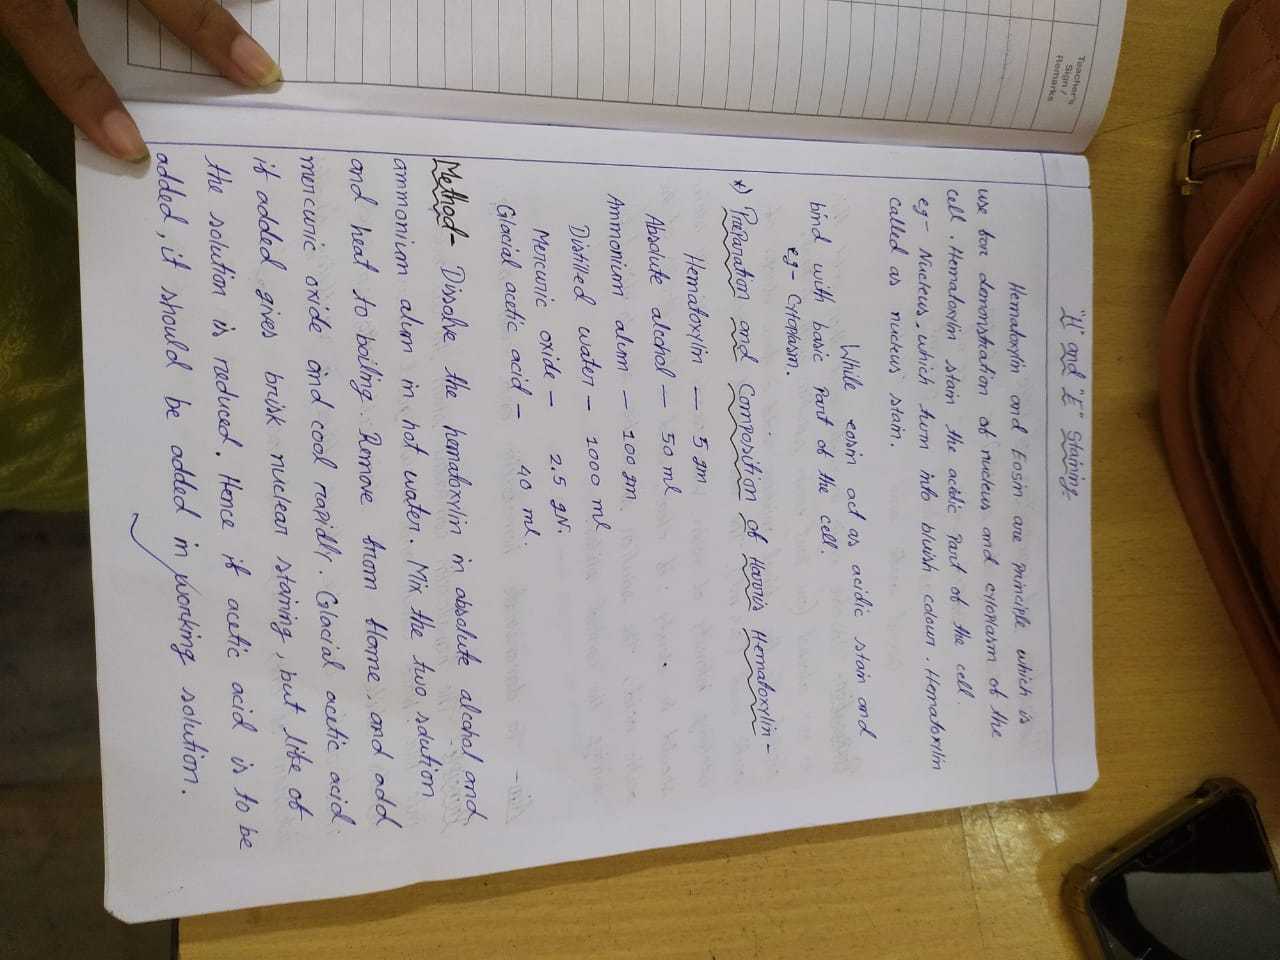 Teacher's
Sign /
Remarks
"H" and "E" Staining.
Hematoxylin and Eosin are principle which is
use for demonstration of nucleus and cytoplasm of the
cell. Hematoxylin stain the acidic part of the cell.
eg- Nucleus, which turn into bluish colour. Hematoxylin
called as nucleus stain.
While eosin act as acidic stain and
bind with basic part of the cell.
eg- cytoplasm.
*) Preparation and composition of Harris Hematoxylin-
Hematoxylin — 5 gm
Absolute alcohol — 50 ml
Ammonium alum — 100 gm
Distilled water - 1000 ml
Mercuric oxide - 2.5 gm
Glacial acetic acid - 40 ml.
Method- Dissolve the hematoxylin in absolute alcohol and
ammonium alum in hot water. Mix the two solution
and heat to boiling. Remove from flame and add
mercuric oxide and cool rapidly. Glacial acetic acid
if added gives brisk nuclear staining, but life of
the solution is reduced. Hence if acetic acid is to be
added, it should be added in working solution.